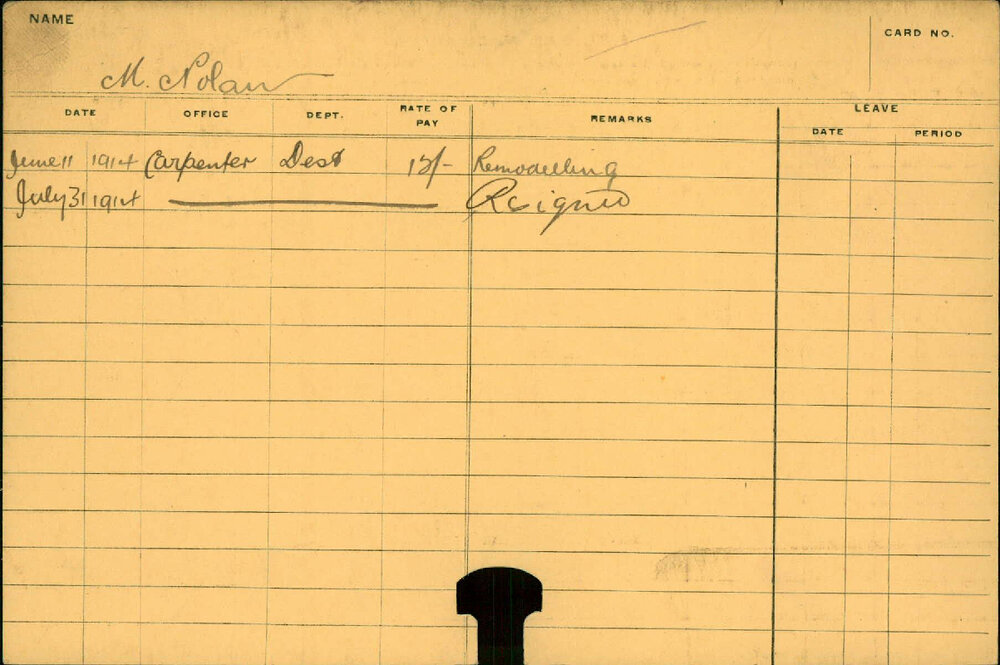 NAME
CARD NO.
M. Nolan
DATE OFFICE DEPT. RATE OF PAY REMARKS LEAVE
DATE PERIOD
June 11 1914 Carpenter Dest 13/- Remodelling
July 31 1914 Resigned